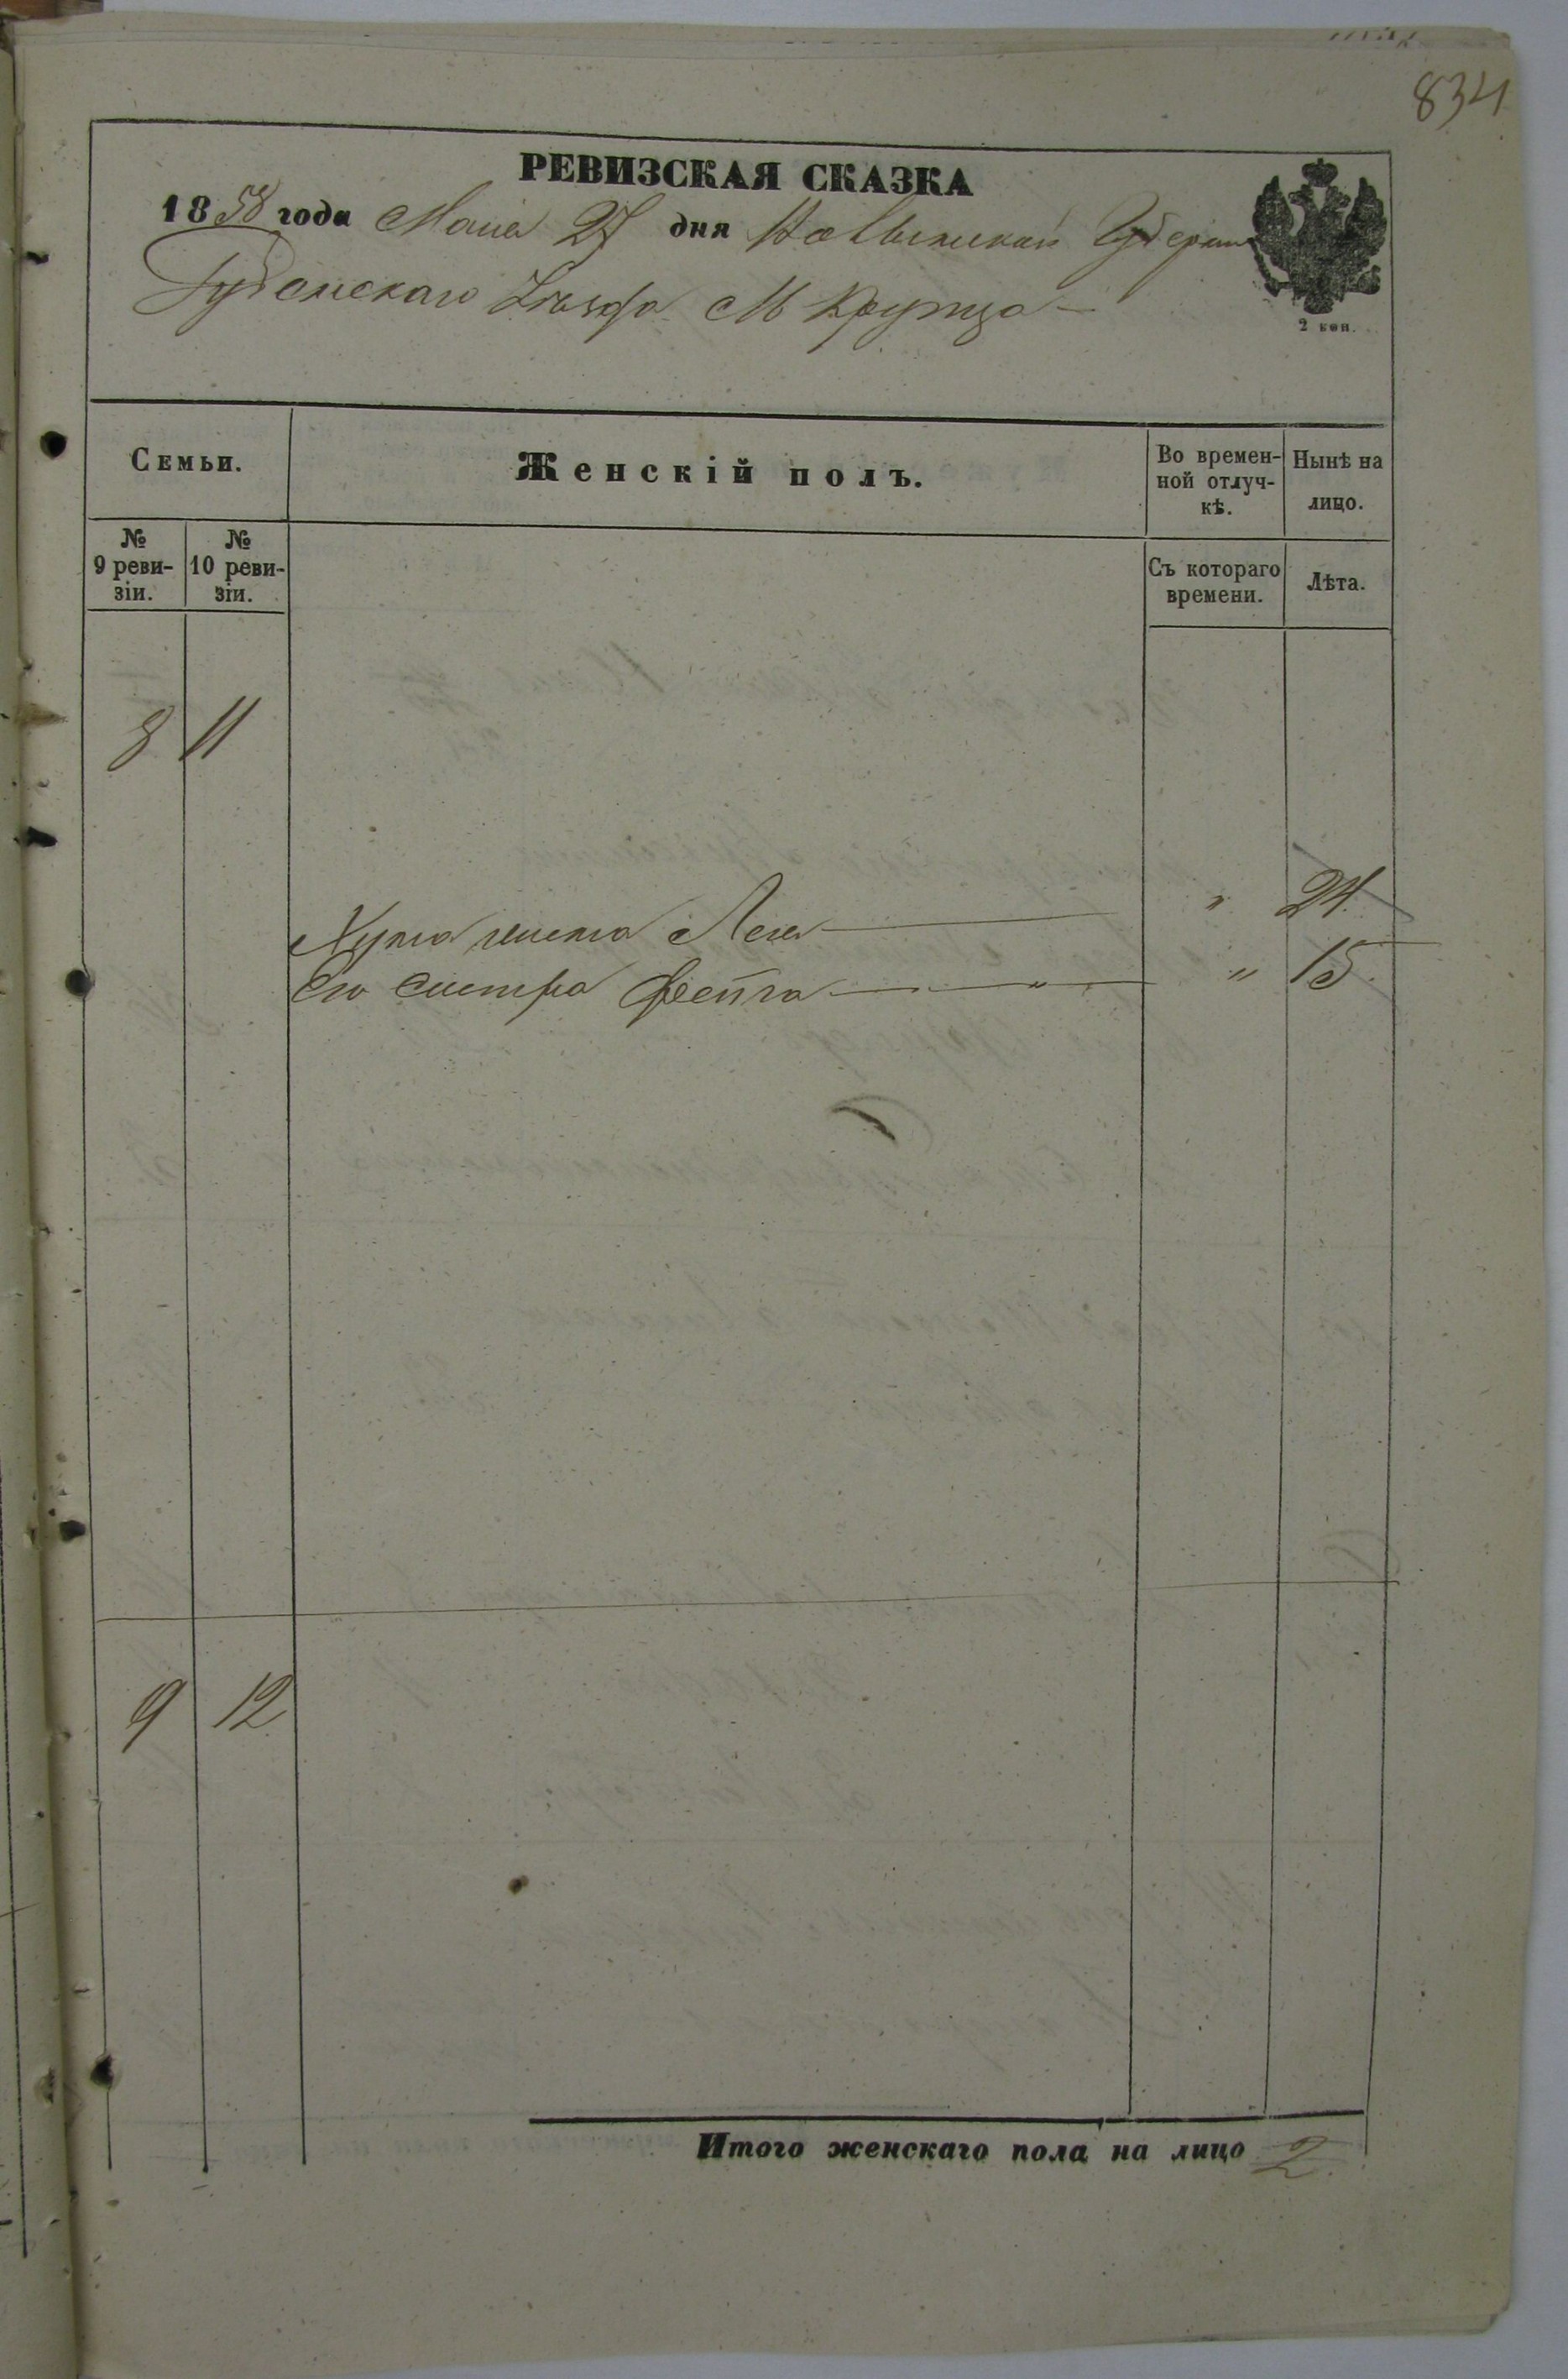 834
РЕВИЗСКАЯ СКАЗКА
1858 года Маия 27 дня Волынской Губернии
Дубенскаго Уѣзда М Крупца
2 коп.
Семьи.
Женскій полъ.
Во времен-
ной отлуч-
кѣ.
Нынѣ на
лицо.
№
9 реви-
зіи.
№
10 реви-
зіи.
Съ котораго
времени.
Лѣта.
8 11
жена Лея " 24.
Его сестра Фейга " " 15.
9 12
Итого женскаго пола на лицо 2.